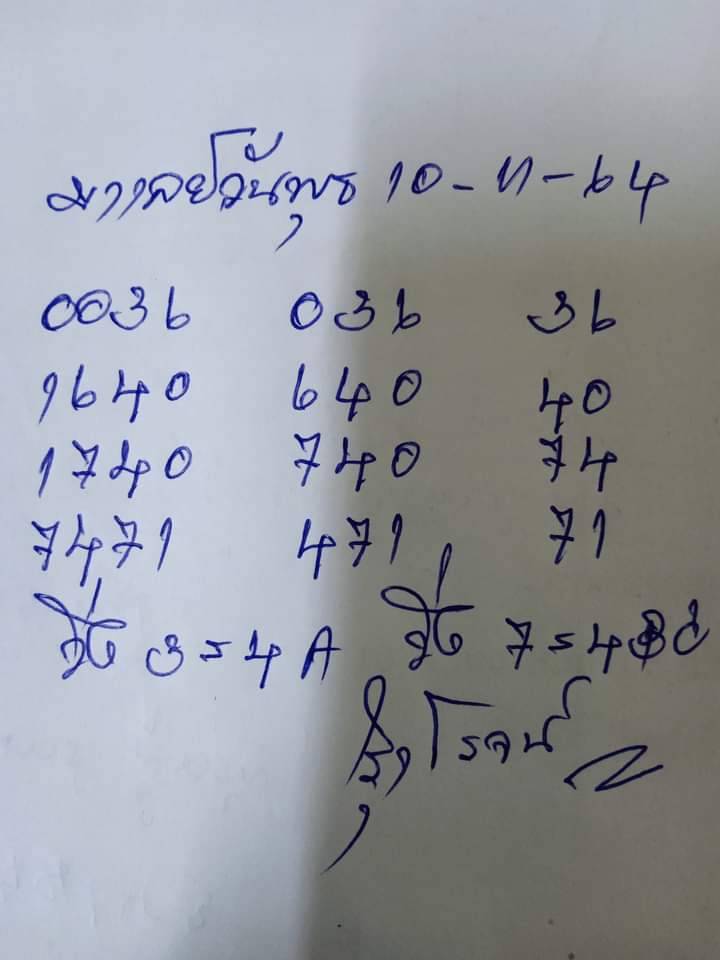 มาเลย์วันพุธ 10-11-64
0036 036 36
1640 640 40
1740 740 74
7471 471 71
วิ่ง 3=4A วิ่ง 7=4
โรจน์